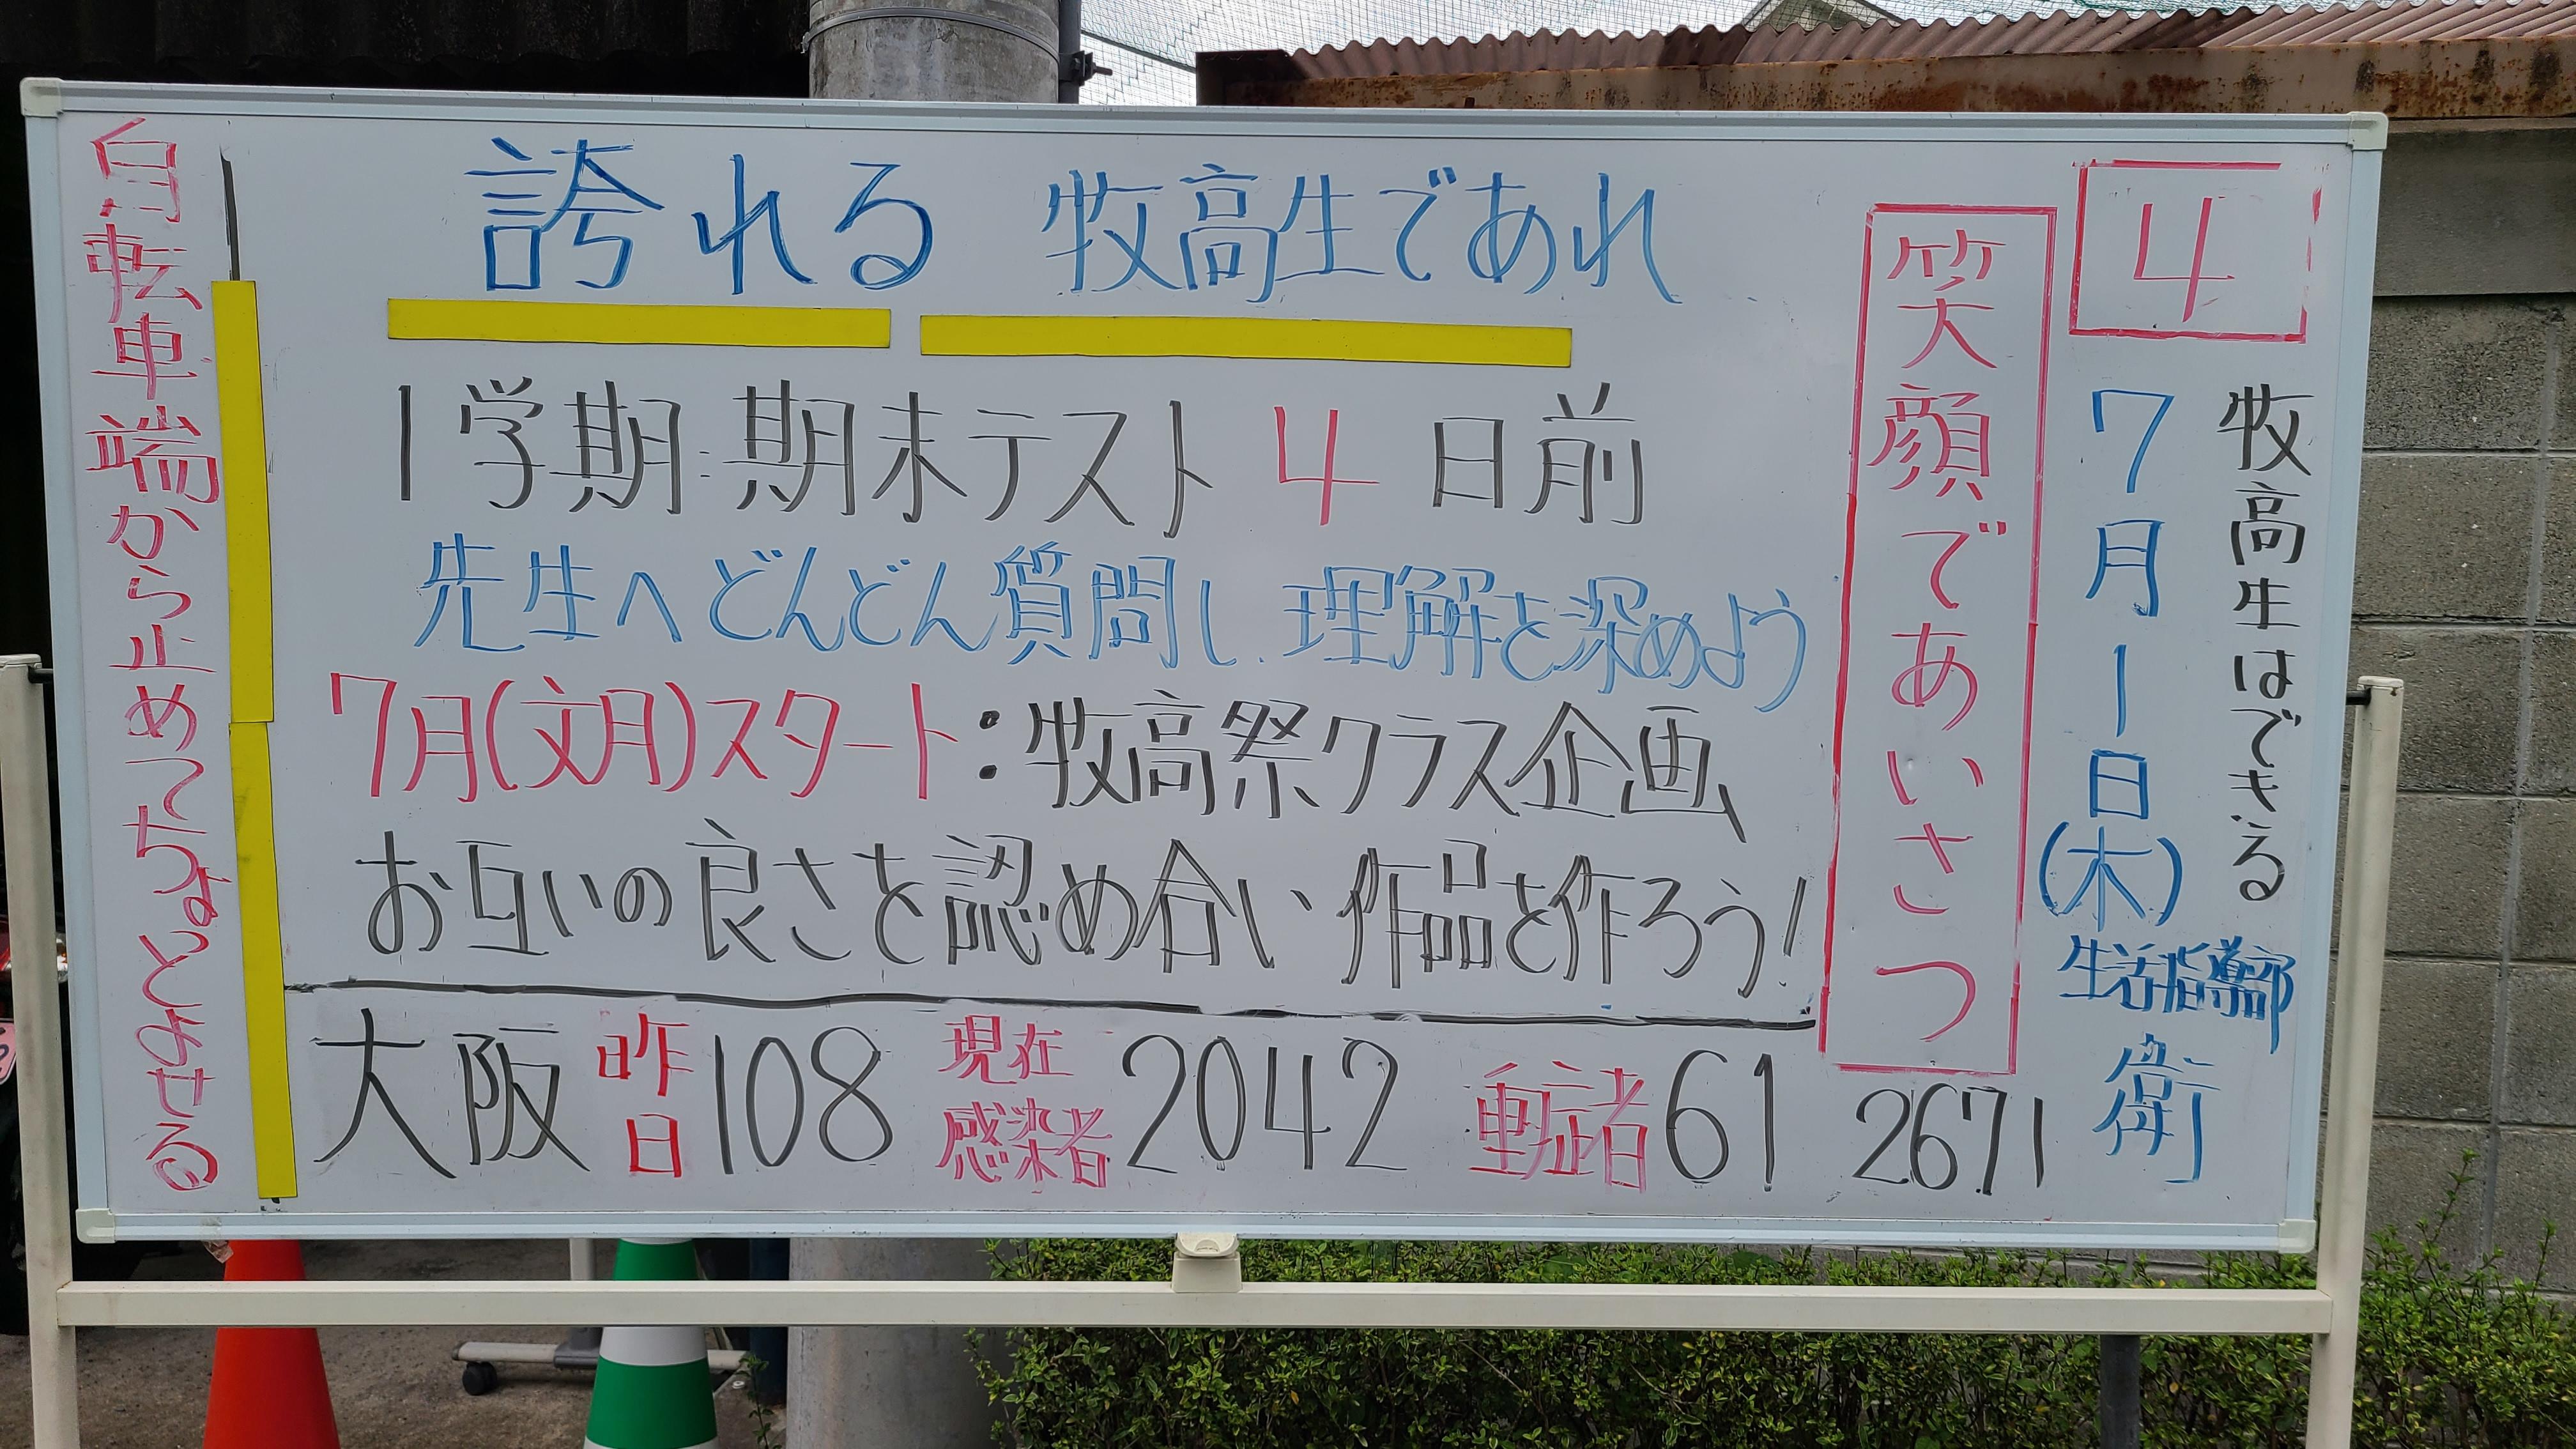 4
牧高生はできる
7月1日(木)
生活指導部
衛
笑顔であいさつ
誇れる 牧高生であれ
1学期:期末テスト 4 日前
先生へどんどん質問し、理解を深めよう
7月(文月)スタート:牧高祭クラス企画
お互いの良さを認め合い 作品を作ろう!
大阪 昨日 108 現在感染者 2042 重症者 61 2671
自転車端から止めてちょっとよせる